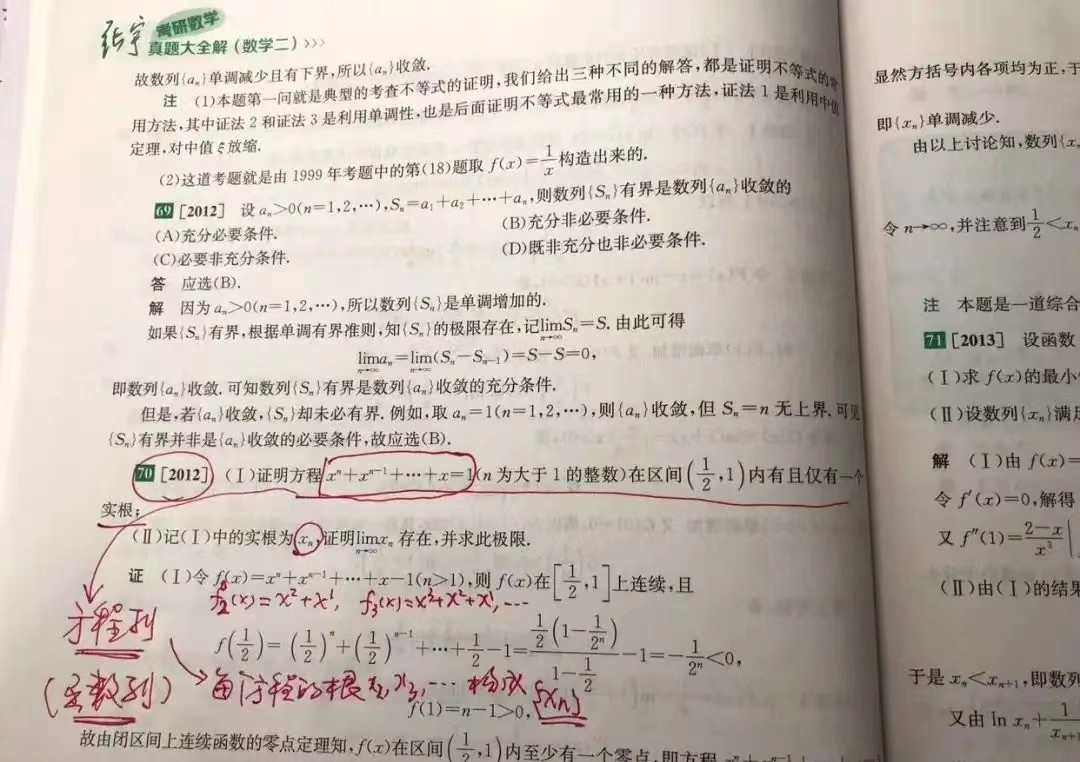 张宇 考研数学
真题大全解(数学二)>>>
故数列{aₙ}单调减少且有下界,所以{aₙ}收敛.
注 (1)本题第一问就是典型的考查不等式的证明,我们给出三种不同的解答,都是证明不等式的常
用方法,其中证法 2 和证法 3 是利用单调性,也是后面证明不等式最常用的一种方法,证法 1 是利用中值
定理,对中值 ξ 放缩.
(2)这道考题就是由 1999 年考题中的第(18)题取 f(x)=1/x 构造出来的.
69 [2012] 设 aₙ>0(n=1,2,…),Sₙ=a₁+a₂+…+aₙ,则数列{Sₙ}有界是数列{aₙ}收敛的
(A)充分必要条件. (B)充分非必要条件.
(C)必要非充分条件. (D)既非充分也非必要条件.
答 应选(B).
解 因为 aₙ>0(n=1,2,…),所以数列{Sₙ}是单调增加的.
如果{Sₙ}有界,根据单调有界准则,知{Sₙ}的极限存在,记 lim(n→∞) Sₙ=S. 由此可得
lim(n→∞) aₙ=lim(n→∞) (Sₙ−Sₙ₋₁)=S−S=0,
即数列{aₙ}收敛. 可知数列{Sₙ}有界是数列{aₙ}收敛的充分条件.
但是,若{aₙ}收敛,{Sₙ}却未必有界. 例如,取 aₙ=1(n=1,2,…),则{aₙ}收敛,但 Sₙ=n 无上界. 可见
{Sₙ}有界并非是{aₙ}收敛的必要条件,故应选(B).
70 [2012] (Ⅰ)证明方程 xⁿ+xⁿ⁻¹+…+x=1(n 为大于 1 的整数)在区间(1/2,1)内有且仅有一个
实根;
(Ⅱ)记(Ⅰ)中的实根为 xₙ,证明 lim(n→∞) xₙ 存在,并求此极限.
证 (Ⅰ)令 f(x)=xⁿ+xⁿ⁻¹+…+x−1(n>1),则 f(x)在[1/2,1]上连续,且
f₂(x)=x²+x¹, f₃(x)=x³+x²+x¹,…
方程列
f(1/2)=(1/2)ⁿ+(1/2)ⁿ⁻¹+…+1/2−1=(1/2(1−1/2ⁿ))/(1−1/2)−1=−1/2ⁿ<0,
(函数列) 每方程的根 x₂,x₃,… 构成 {xₙ}
f(1)=n−1>0,
故由闭区间上连续函数的零点定理知,f(x)在区间(1/2,1)内至少有一个零点,即方程
显然方括号内各项均为正,于
即{xₙ}单调减少.
由以上讨论知,数列{x
令 n→∞,并注意到 1/2<xₙ
注 本题是一道综合
71 [2013] 设函数
(Ⅰ)求 f(x)的最小
(Ⅱ)设数列{xₙ}满足
解 (Ⅰ)由 f(x)=
令 f′(x)=0,解得
又 f″(1)=(2−x)/x³|
(Ⅱ)由(Ⅰ)的结果
于是 xₙ<xₙ₊₁,即数列
又由 ln xₙ+1/xₙ₊₁